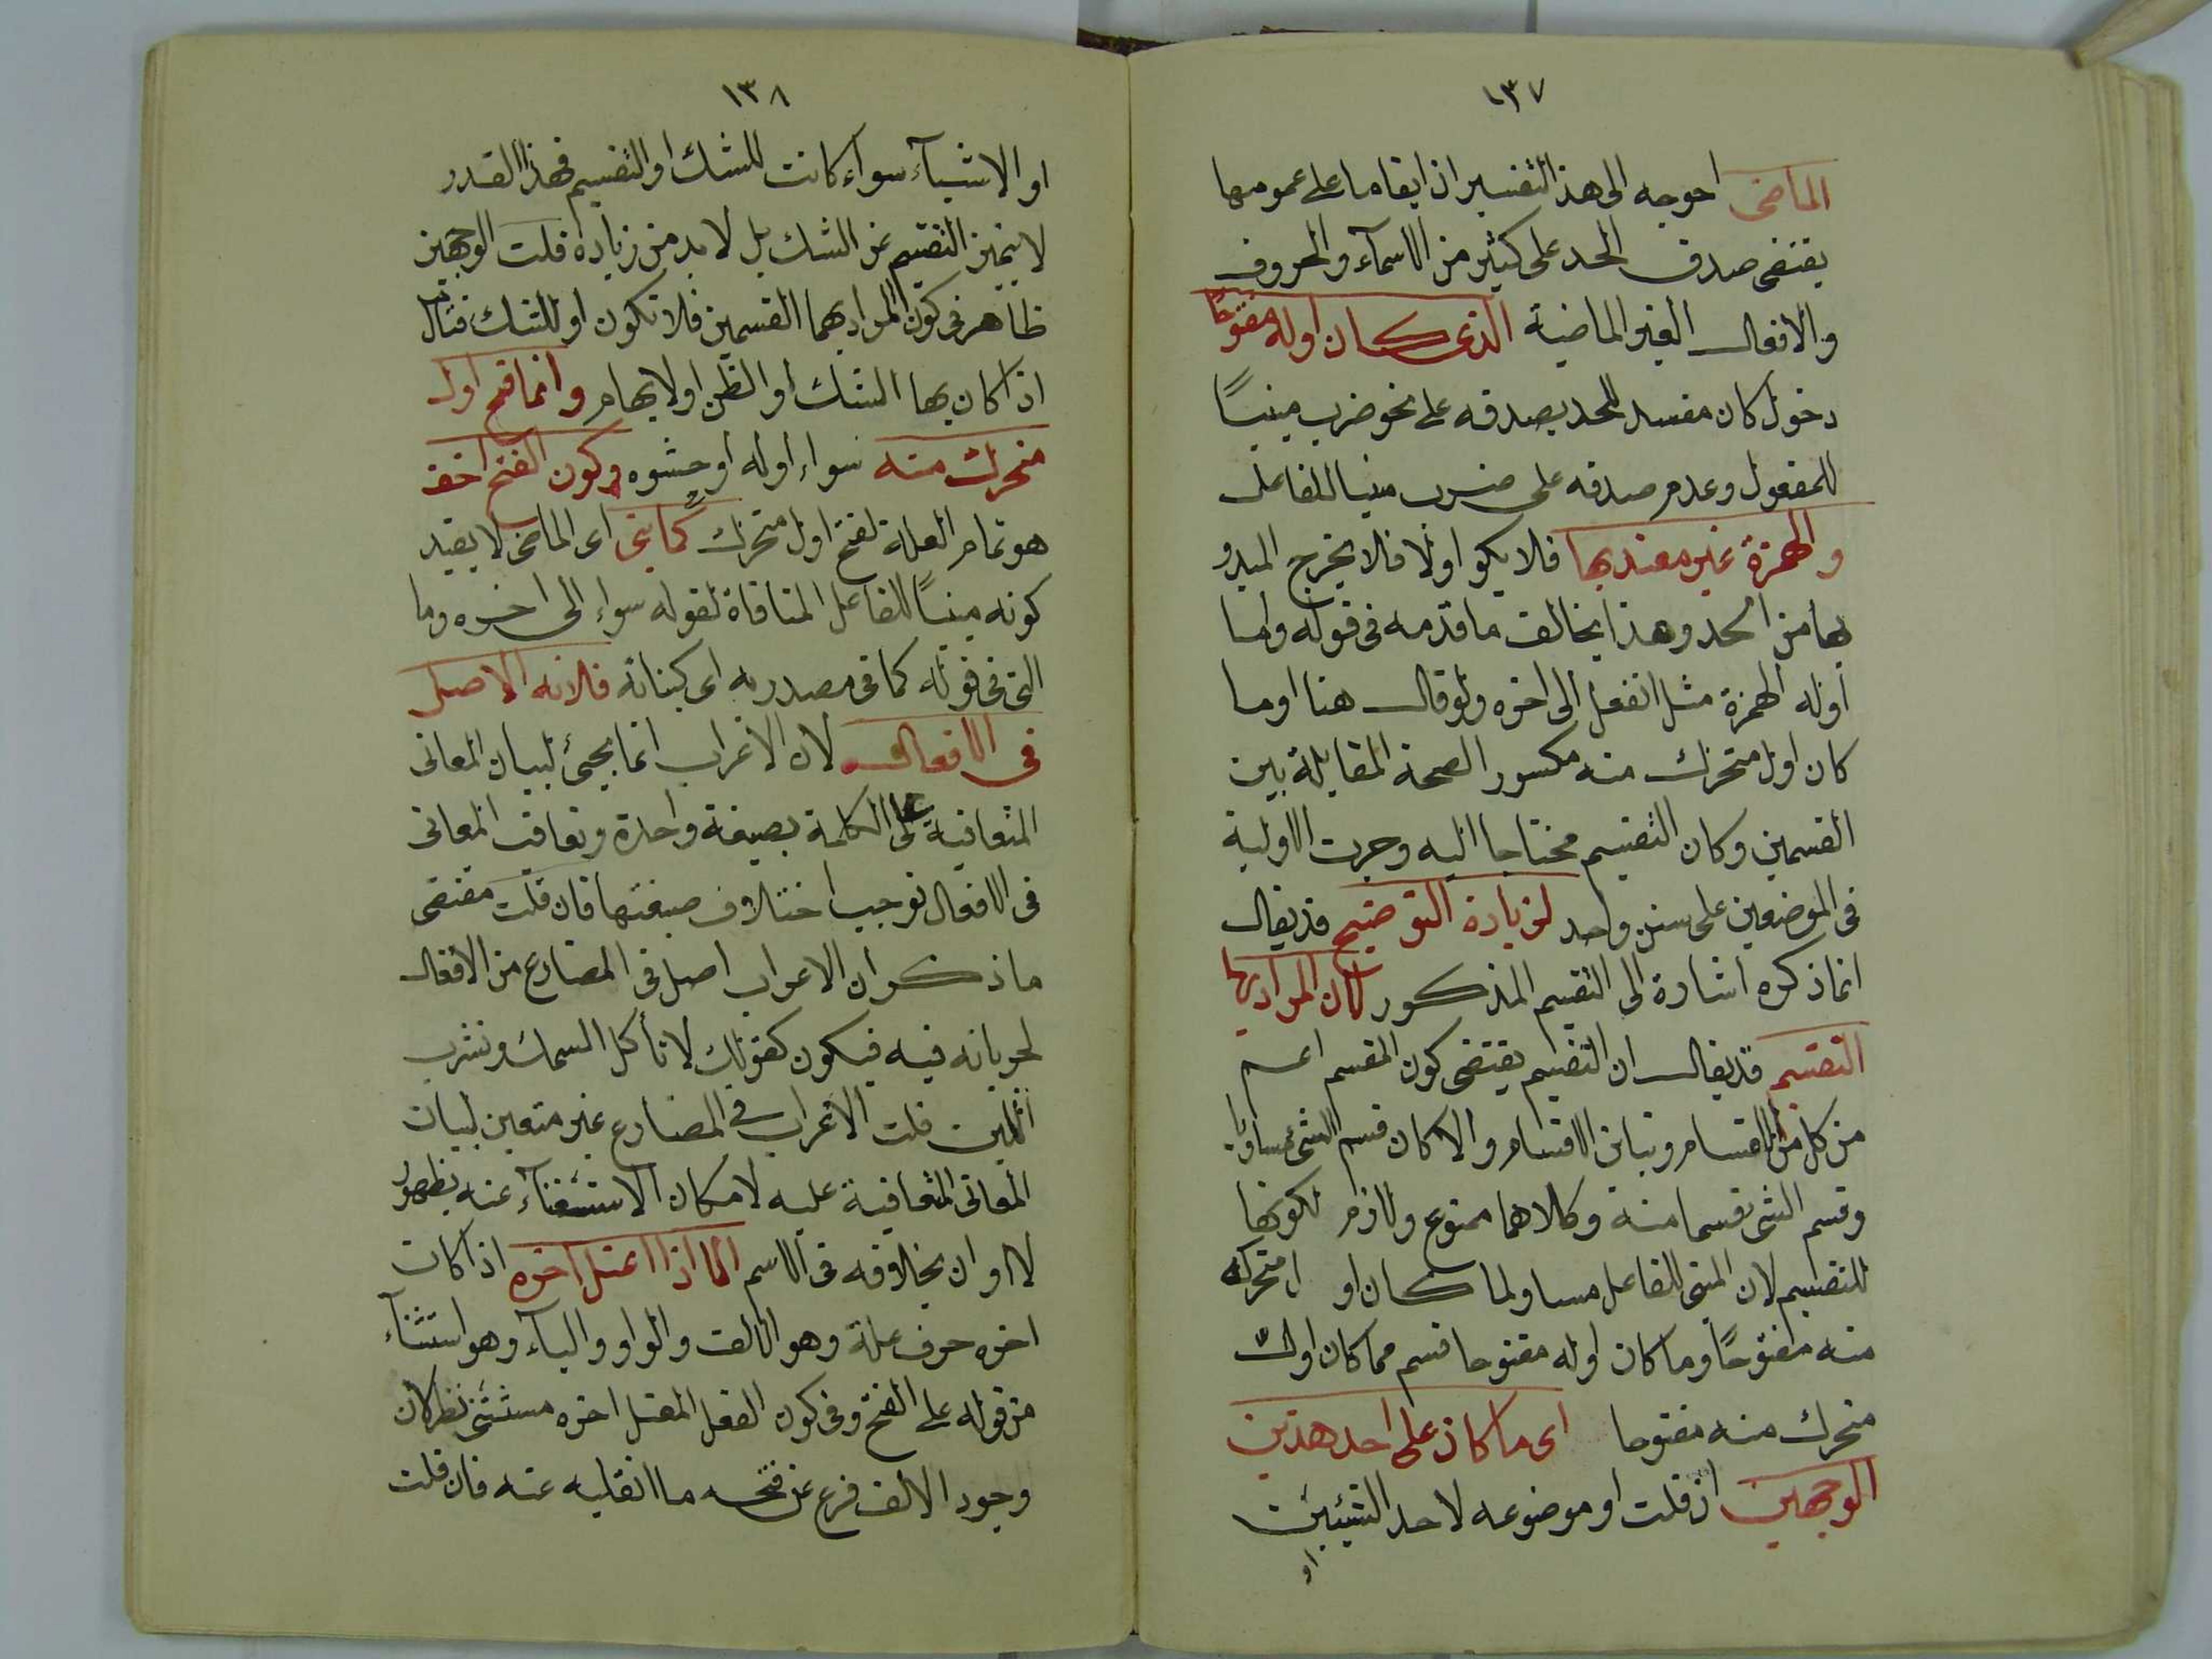 ١٣٧
الماضى احوجه الى هذا التفسير اذ ابقاءما على عمومها
يقتضى صدق الحد على كثير من الاسمآء والحروف
والافعال الغير الماضية الذى كان اوله مفتوحًا
دخول كان مفسد للحد بصدقه على نحو ضرب مبنيًا
للمفعول وعدم صدقه على ضرب مبنيا للفاعل
والهمزة غير معتد بها فلا يكو اولا فلا يخرج المبدو
بها من الحد وهذا يخالف ما قدمه فى قوله واما
اوله الهمزة مثل انفعل الى اخره ولو قال هنا او ما
كان اول متحرك منه مكسور الصحة المقابلة بين
القسمين وكان التقسيم محتاجا اليه وجرت الاولية
فى الموضعين على سنن واحد لزيادة التوضيح قد يقال
انما ذكره اشارة الى التقسيم المذكور لان المراد بها
التقسيم قد يقال ان التقسيم يقتضى كون المقسم اعم
من كل من الاقسام وتباين الاقسام والا كان قسم الشئ مساويا
وقسم الشئ قسما منه وكلاهما ممنوع ولازم لكونها
للتقسيم لان المبنى للفاعل مساو لما كان او ل متحرك
منه مفتوحًا وما كان اوله مفتوحا قسم مما كان اول
متحرك منه مفتوحا اى ما كان على احد هذين
الوجهين ان قلت او موضوعه لاحد الشيئين
او
١٣٨
او الاشيآء سواء كانت للشك او التقسيم فهذا القدر
لا يتميز التقسيم عن الشك بل لا بد من زيادة قلت الوجهين
ظاهر فى كون المراد بهما القسمين فلا تكون او للشك فتأمل
اذا كان بها الشك او الظن او لابهام وانما فتح اول
متحرك منه سواء اوله او حشوه وكون الفتح اخف
هو تمام العلة لفتح اول متحرك كما بنى اى الماضى لا بقيد
كونه مبنيًا للفاعل المنافاة لقوله سواء الى اخره وما
التى فى قوله كما فى مصدريه اى كبنائه فلانه الاصل
فى الافعال لان الاعراب انما يجئ لبيان المعانى
المتعاقبة على الكلمة بصيغة واحدة وتعاقب المعانى
فى الافعال توجب اختلاف صيغتها فان قلت مقتضى
ما ذكر ان الاعراب اصل فى المضارع من الافعال
لجريانه فيه فيكون كقولك لا تأكل السمك وتشرب
اللبن قلت الاعراب فى المضارع غير متعين لبيان
المعانى المتعاقبة عليه لامكان الاستغنآء عنه بظهور
لا او ان بخلافه فى الاسم الا اذا اعتل اخره اذا كان
اخره حرف علة وهو الالف والواو واليآء وهو استثنآء
من قوله على الفتح وفى كون الفعل المعتل اخره مستثنى نظر لان
وجود الالف فرع عن فتحه ما انقلبه عنه فان قلت